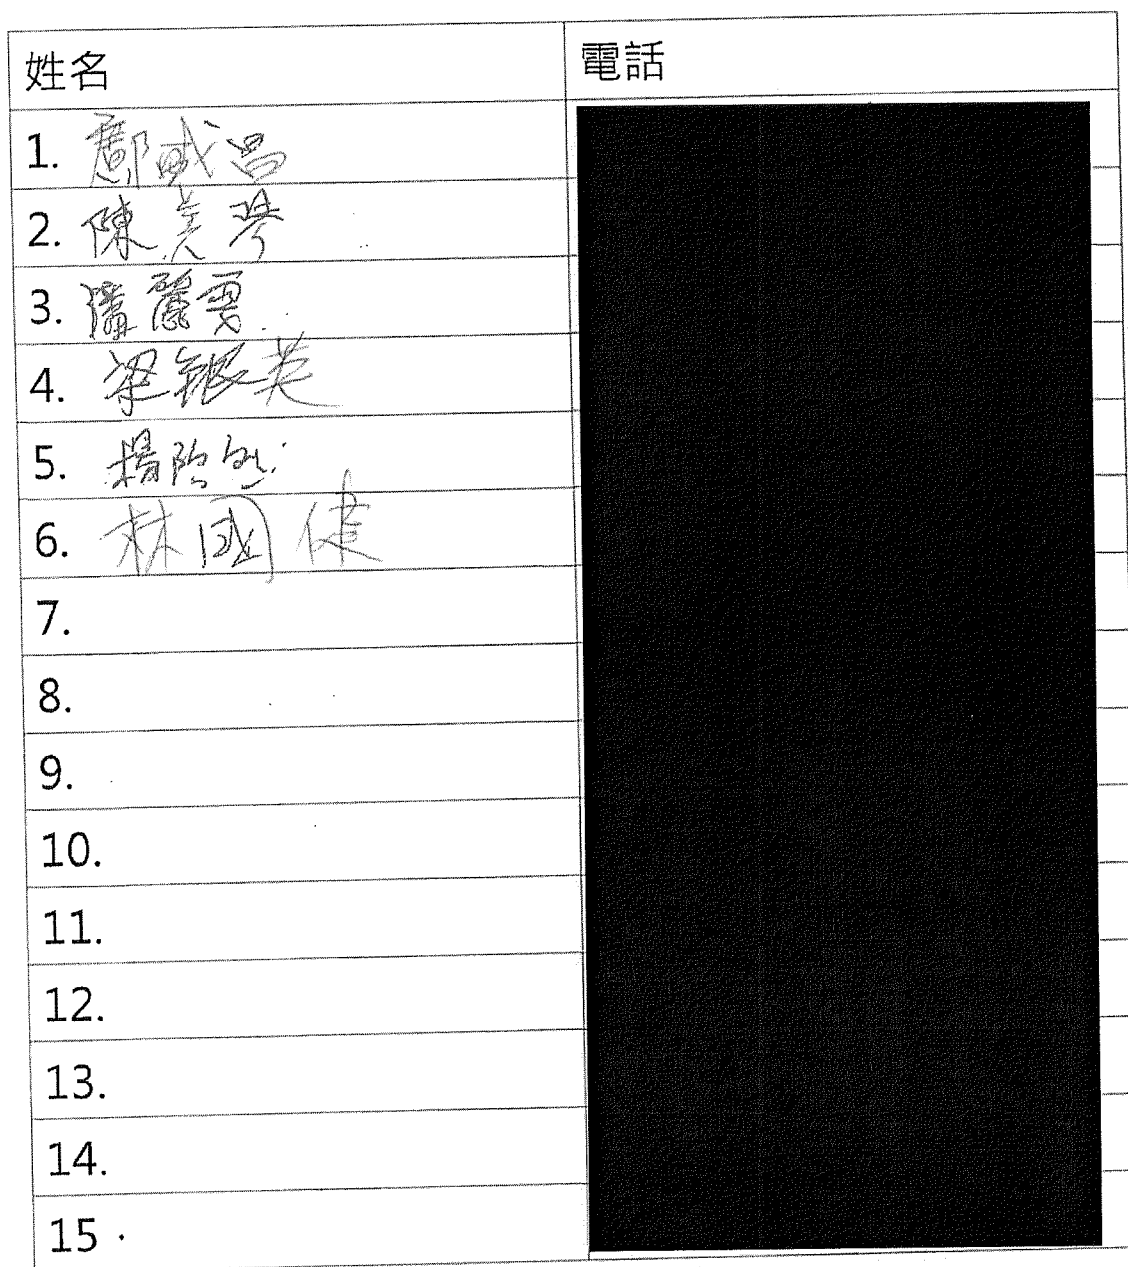 姓名 電話
1. 鄺國昌
2. 陳美琴
3. 潘麗雯
4. 梁銀英
5. 楊
6. 林國健
7.
8.
9.
10.
11.
12.
13.
14.
15.